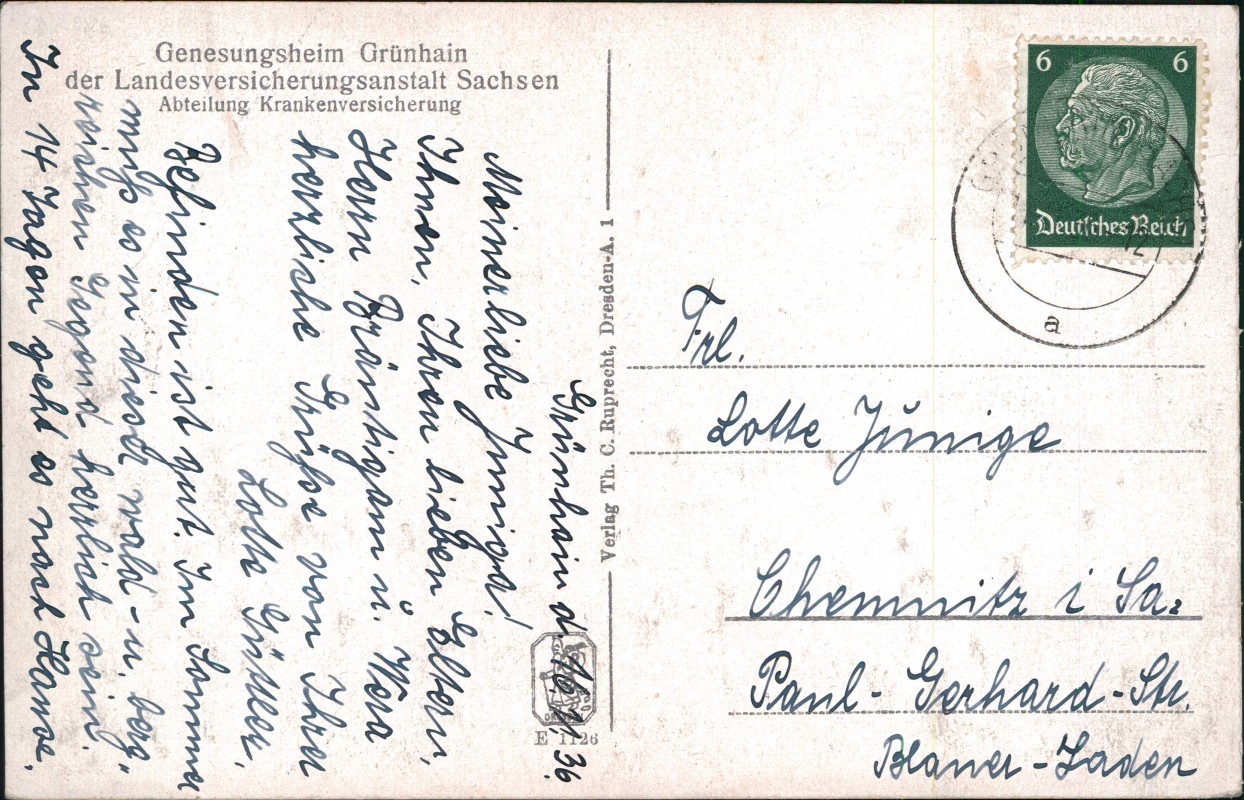 Genesungsheim Grünhain
der Landesversicherungsanstalt Sachsen
Abteilung Krankenversicherung
Grünhain d. 16.1.36.
Meine liebe Junige!
Ihnen, Ihren lieben Eltern,
Herrn Bräutigam u. Wera
herzliche Grüße von Ihrer
Lotte
Befinden ist gut. Im Sommer
muß es in dieser wald- u. berg-
reichen Gegend herrlich sein.
In 14 Tagen geht es nach Hause.
Verlag Th. C. Ruprecht, Dresden-A. 1
E 1126
6 6
Deutsches Reich
12
a
Frl.
Lotte Junige
Chemnitz i Sa.
Paul-Gerhard-Str.
Blauer-Laden